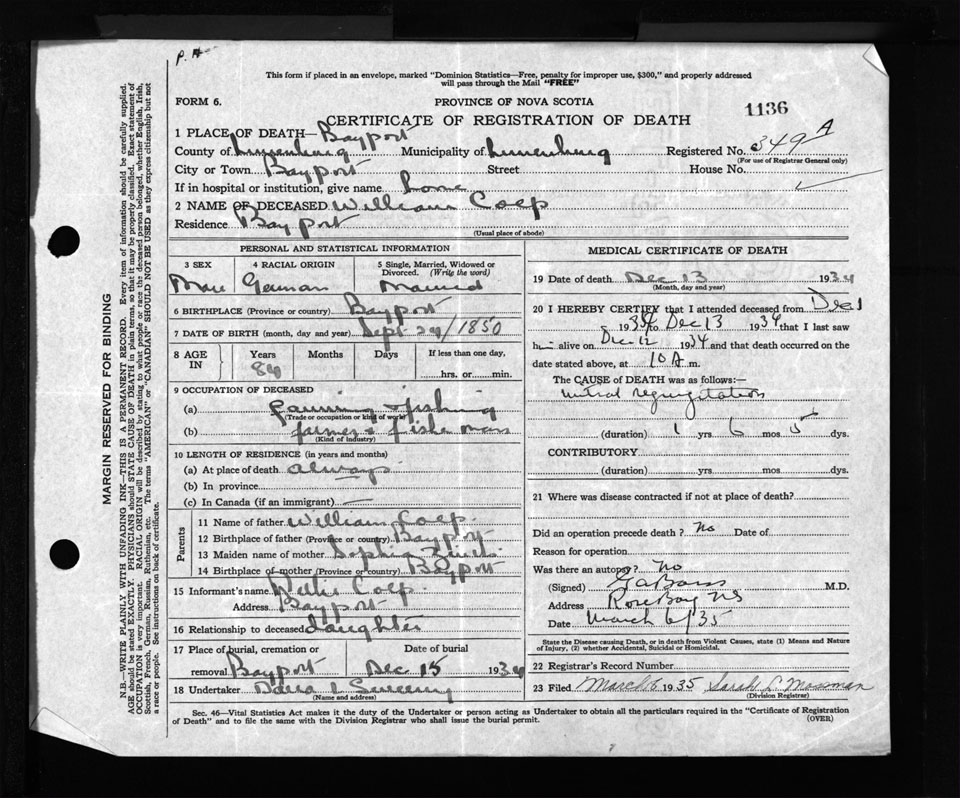 P. H
This form if placed in an envelope, marked "Dominion Statistics—Free, penalty for improper use, $300," and properly addressed
will pass through the Mail "FREE"
FORM 6.
PROVINCE OF NOVA SCOTIA
1136
CERTIFICATE OF REGISTRATION OF DEATH
1 PLACE OF DEATH— Bayport
County of Lunenburg Municipality of Lunenburg Registered No. 349 A
(For use of Registrar General only)
City or Town Bayport Street House No.
If in hospital or institution, give name home
2 NAME OF DECEASED William Corp
Residence Bayport
(Usual place of abode)
PERSONAL AND STATISTICAL INFORMATION
3 SEX 4 RACIAL ORIGIN 5 Single, Married, Widowed or
Divorced. (Write the word)
German Married
6 BIRTHPLACE (Province or country) Bayport
7 DATE OF BIRTH (month, day and year) Sept 29/1850
8 AGE IN Years Months Days If less than one day,
84
hrs. or min.
9 OCCUPATION OF DECEASED
(a) farming & fishing
(Trade or occupation or kind of work)
(b) farmer & fisherman
(Kind of industry)
10 LENGTH OF RESIDENCE (in years and months)
(a) At place of death always
(b) In province
(c) In Canada (if an immigrant) —
Parents
11 Name of father William Corp
12 Birthplace of father (Province or country) Bayport
13 Maiden name of mother Sophia
14 Birthplace of mother (Province or country) Bayport
15 Informant's name Corp
Address Bayport
16 Relationship to deceased daughter
17 Place of burial, cremation or removal Date of burial
Bayport Dec 15 1934
18 Undertaker
(Name and address)
MEDICAL CERTIFICATE OF DEATH
19 Date of death Dec 13 1934
(Month, day and year)
20 I HEREBY CERTIFY that I attended deceased from Dec 1
1934 to Dec 13 1934 that I last saw
him alive on Dec 12 1934 and that death occurred on the
date stated above, at 10 A m.
The CAUSE of DEATH was as follows:—
Mitral regurgitation
(duration) 1 yrs 6 mos 5 dys.
CONTRIBUTORY
(duration) yrs. mos. dys.
21 Where was disease contracted if not at place of death?
Did an operation precede death? No Date of
Reason for operation
Was there an autopsy? no
(Signed) M.D.
Address Rose Bay NS
Date March 6/35
State the Disease causing Death, or in death from Violent Causes, state (1) Means and Nature
of Injury, (2) whether Accidental, Suicidal or Homicidal.
22 Registrar's Record Number
23 Filed March 6 1935 Sarah L. Mossman
(Division Registrar)
Sec. 46—Vital Statistics Act makes it the duty of the Undertaker or person acting as Undertaker to obtain all the particulars required in the "Certificate of Registration
of Death" and to file the same with the Division Registrar who shall issue the burial permit.
(OVER)
MARGIN RESERVED FOR BINDING
N.B.—WRITE PLAINLY WITH UNFADING INK—THIS IS A PERMANENT RECORD. Every item of information should be carefully supplied.
AGE should be stated EXACTLY. PHYSICIANS should STATE CAUSE OF DEATH in plain terms, so that it may be properly classified. Exact statement of
OCCUPATION is very important. RACIAL ORIGIN will be described by stating to what people or race the deceased person belonged, whether English, Irish,
Scottish, French, German, Russian, Ruthenian, etc. The terms "AMERICAN" or "CANADIAN" SHOULD NOT BE USED as they express citizenship but not
a race or people. See instructions on back of certificate.